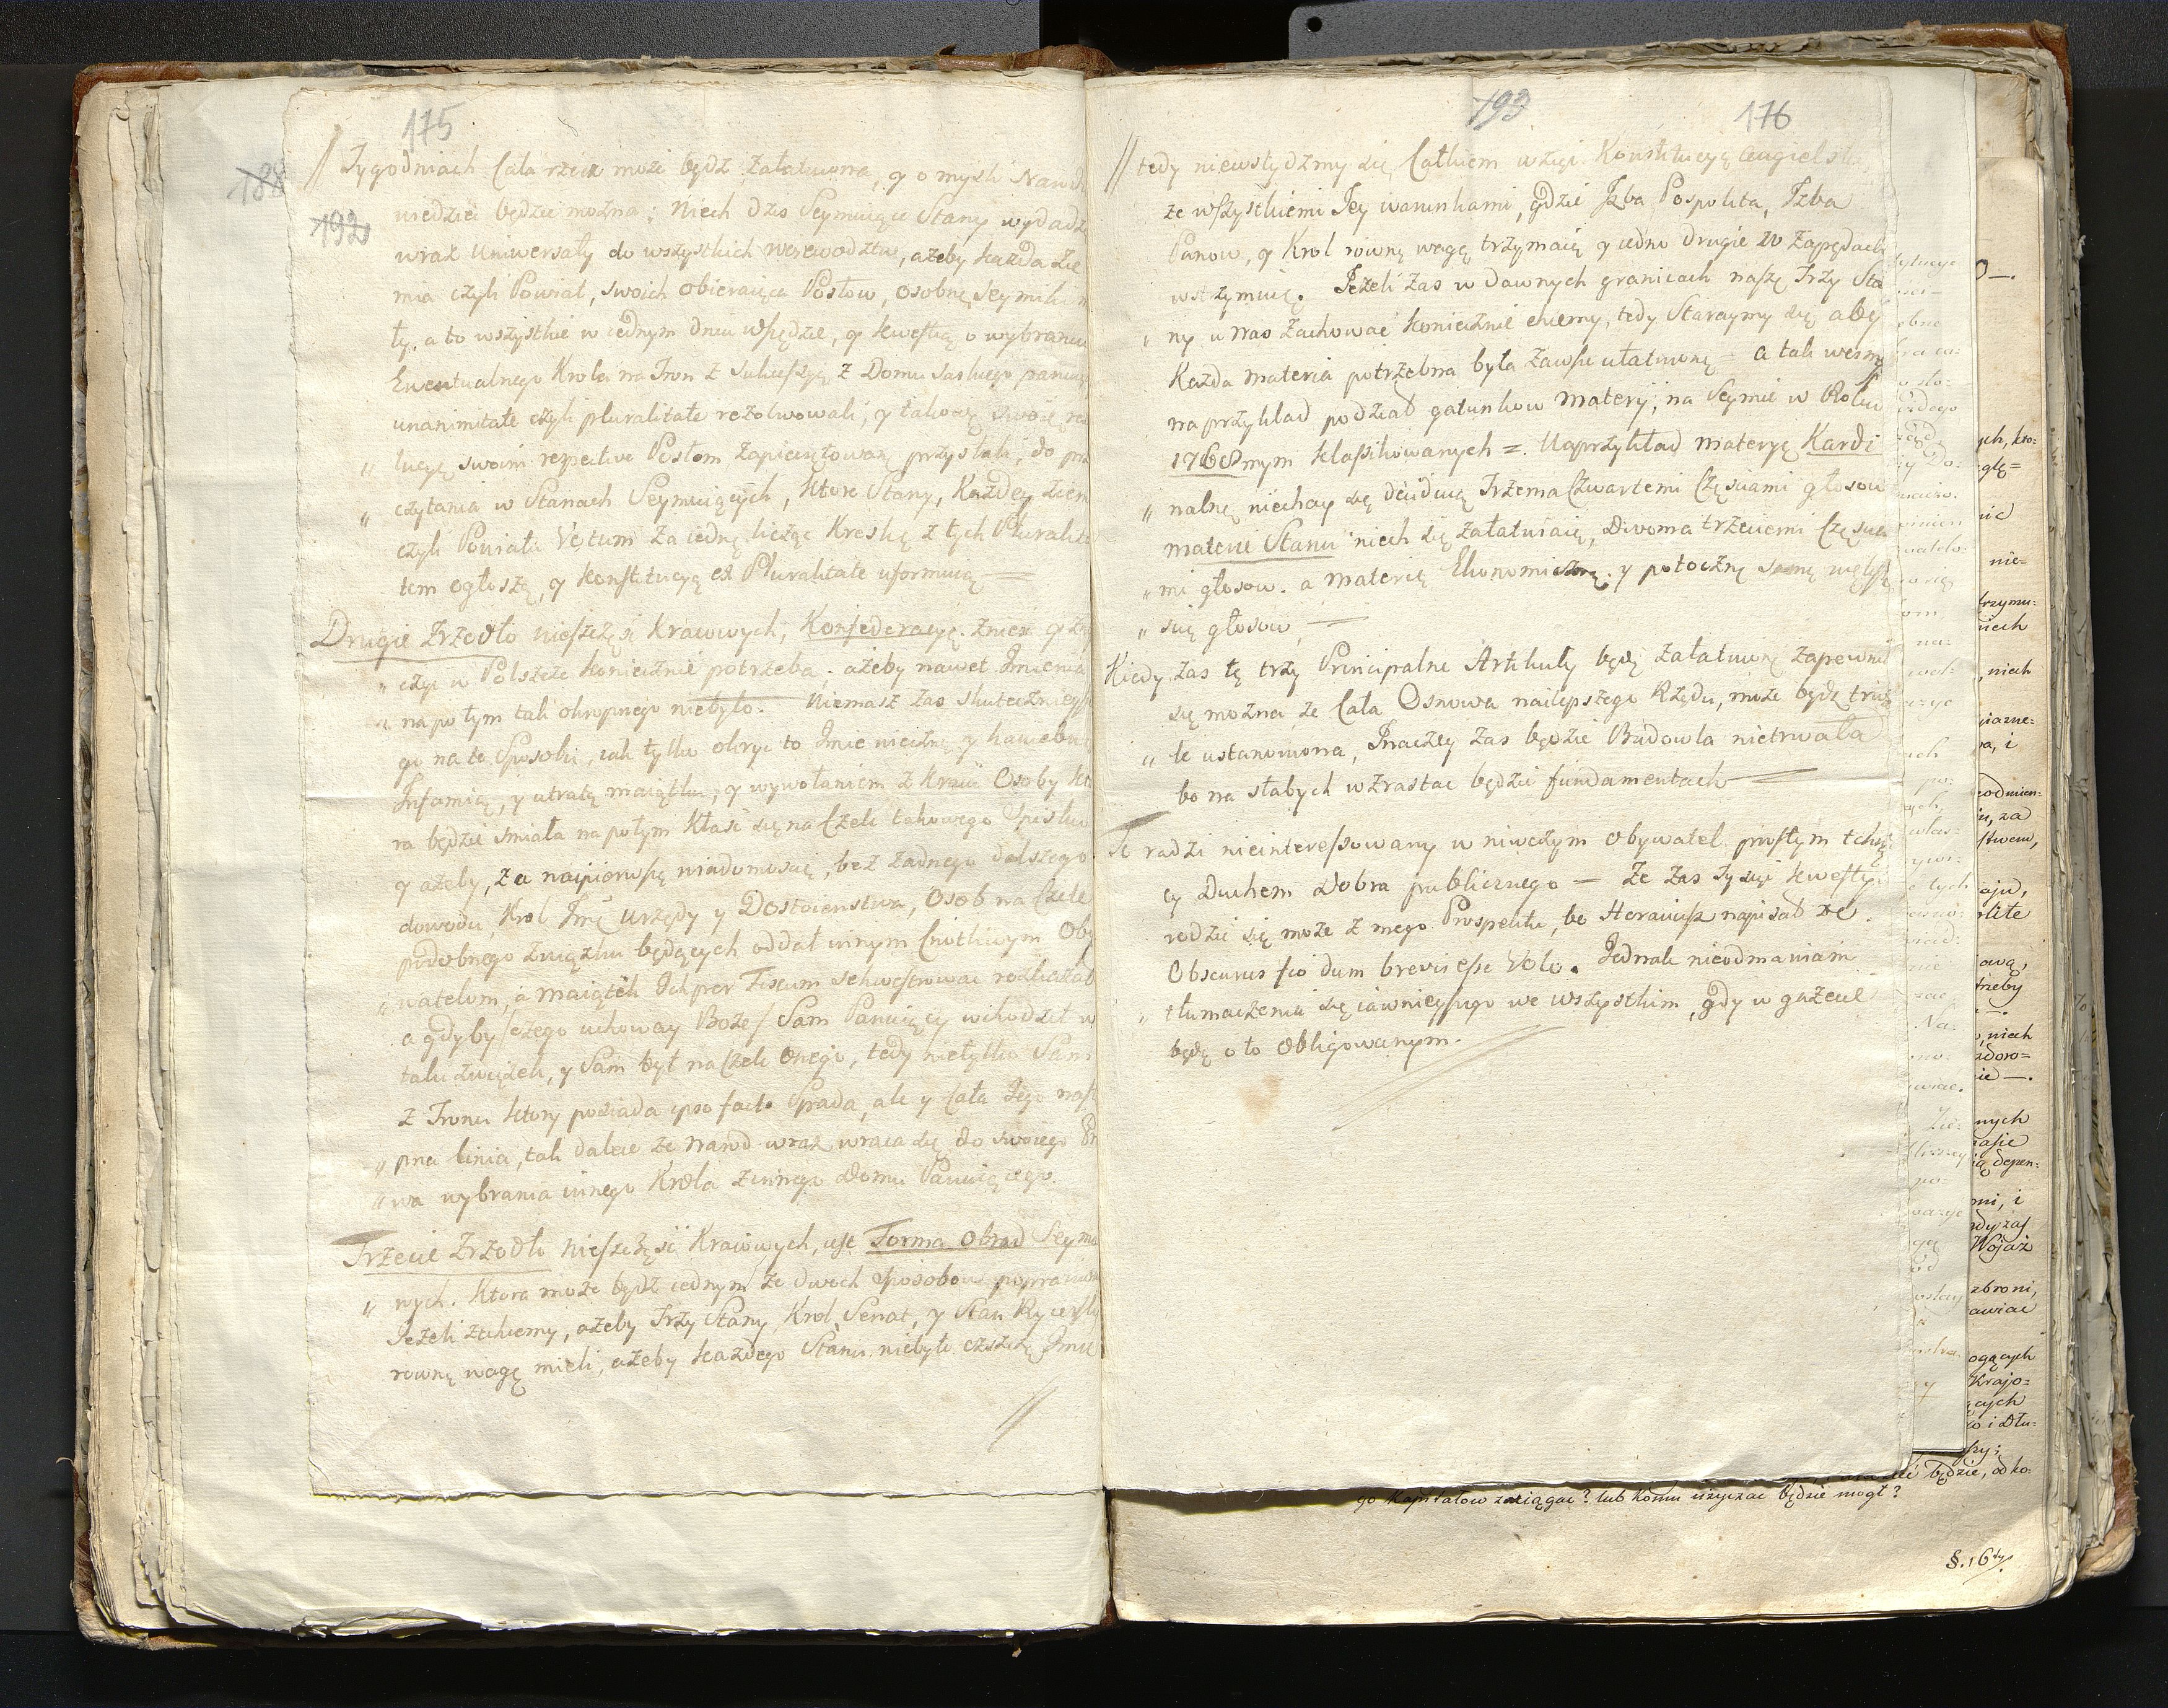 175
188
192
// Tygodniach Cała rzecz może będź załatwiona, y o myśli Narodu
wiedzieć będzie można; Niech dzis Seymuiące Stany wydadzą
wraz Uniwersały do wszystkich Woiewodztw, ażeby każda Zie
mia czyli Powiat, swoich obieraiąca Posłow, osobne Seymiki m
ły, a to wszystkie w iednym dniu wszędzie, y kwestią o wybraniu
Ewentualnego Krola na Tron z Sukcessyą z Domu Saskiego panuią
unanimitate czyli pluralitate rezolwowali, y takową swoię rezo
„ lucyę swoim respective Posłom zapieczętowaną przysłali, do prze
„ czytania w Stanach Seymuiących, ktore Stany, Każdey Ziemi
czyli Powiatu Votum za iedną licząc Kreskę z tych Pluralita
tem ogłoszą, y konstytucyą ex Pluralitate uformuią —
Drugie Zrzodło nieszczęść Kraiowych, Konfederacyę. znieść y zni
„ czyć w Polszcze koniecznie potrzeba. ażeby nawet Imienia
„ na potym tak okropnego niebyło. Niemasz zas skutecznieysze
go na to Sposobu, iak tylko okryć to Imie niecne, y haniebne
Infamią, y utratą maiątku, y wywołaniem z kraiu Osoby kto
ra będzie smiała na potym kłaść się na Czele takowego Spisku
y ażeby, za naypierwszą wiadomością, bez żadnego dalszego
dowodu, Krol Jmć Urzędy y Dostoienstwa, Osob na Czele
podobnego Związku będących oddał innym Cnotliwym Oby
„ watelom, a maiątek Ich per Fiscum sekwestrować rozkazał
a gdyby /czego uchoway Boże/ Sam Panuiący wchodził w
taki związek, y Sam był na Czele onego, tedy nietylko Sam
z Tronu ktory posiada ipso facto Spada, ale y Cała Jego nastę
„ pna linia, tak dalece że Narod wraz wraca się do swoiego Pra
„ wa wybrania innego Krola z innego Domu Panuiącego.
Trzecie Zrzodło nieszczęść Kraiowych, iest Forma Obrad Seymo
„ wych. Ktora może będź iednym ze dwoch sposobow poprawiona
Jeżeli zechcemy, ażeby Trzy Stany, Krol, Senat, y Stan Rycerski
rowną wagę mieli, ażeby każdego Stanu niebyło czsze Imie
//
193
176
// tedy niewstydzmy się Całkiem wziąć Konstytucyę Angielską
ze wszystkiemi Jey warunkami, gdzie Izba Pospolita, Izba
Panow, y Krol rowną wagę trzymaią y iedno drugie w zapędach
wstrzymuie. Jeżeli zas w dawnych granicach naszę Trzy Sta
„ ny u nas zachować koniecznie chcemy, tedy Staraymy się aby
Każda Materia potrzebna była zawsze ułatwioną = a tak weźmy
na przykład podział gatunkow Materyi, na Seymie w Roku
1768mym klassikowanych =. Naprzykład materyę Kardi
„ nalne niechay się deciduią Trzema Czwartemi Częsciami głosow
materie Stanu niech się załatwiaią, Dwoma trzeciemi Częscia
„ mi głosow. a materię Ekonomiczną y potoczne samę więks
„ scią głosow —
Kiedy zas tę trzy Principalne Artykuły będą załatwione zapewne
się można że Cała Osnowa naylepszego Rządu, może będź trw
„ le ustanowiona, Jnaczey zas będzie Budowla nietrwała
bo na słabych wzrastać będzie fundamentach —
Te radzi nieinteressowany w niweczym Obywatel prostym tchną
cy Duchem Dobra publicznego — Że zas Tysiąc kwestyi
rodzić się może z mego Prospektu, bo Horaciusz napisał że
Obscurus fio dum brevis esse Volo. Jednak nieodmawiam
„ tłumaczenia się iawnieyszego we wszystkim, gdy w gazecie
będę o to obligowanym.
go kapitałow zaciągać? lub komu użyczać będzie mogł?
§. 16ty